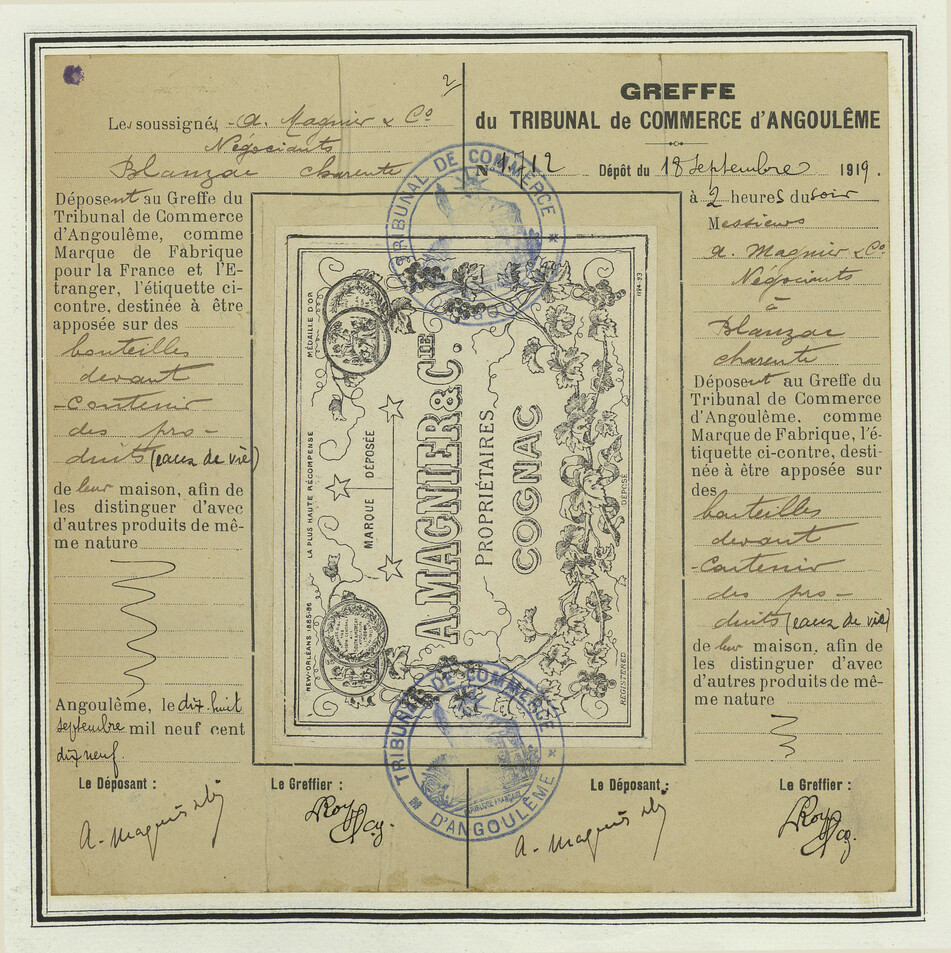 2
Les soussignés A. Magnier & Co
Négociants
Blanzac charente
Déposent au Greffe du
Tribunal de Commerce
d'Angoulême, comme
Marque de Fabrique
pour la France et l'E-
tranger, l'étiquette ci-
contre, destinée à être
apposée sur des
bouteilles
devant
contenir
des pro-
duits (eaux de vie)
de leur maison, afin de
les distinguer d'avec
d'autres produits de mê-
me nature
Angoulême, le dix huit
septembre mil neuf cent
dix neuf.
Le Déposant :
A. Magnier
Le Greffier :
Roy
TRIBUNAL DE COMMERCE
MÉDAILLE D'OR
LA PLUS HAUTE RÉCOMPENSE
NEW-ORLÉANS 1885-86
MARQUE DÉPOSÉE
A. MAGNIER & CIE.
PROPRIÉTAIRES
COGNAC
DÉPOSÉ
REGISTERED
TRIBUNAL DE COMMERCE
RÉPUBLIQUE FRANÇAISE
D'ANGOULÊME
GREFFE
du TRIBUNAL de COMMERCE d'ANGOULÊME
N° 1712 Dépôt du 18 Septembre 1919.
à 2 heures du soir
Messieurs
A. Magnier & Co.
Négociants
à
Blanzac
charente
Déposent au Greffe du
Tribunal de Commerce
d'Angoulême, comme
Marque de Fabrique, l'é-
tiquette ci-contre, desti-
née à être apposée sur
des
bouteilles
devant
contenir
des pro-
duits (eaux de vie)
de leur maison, afin de
les distinguer d'avec
d'autres produits de mê-
me nature
Le Déposant :
A. Magnier
Le Greffier :
Roy